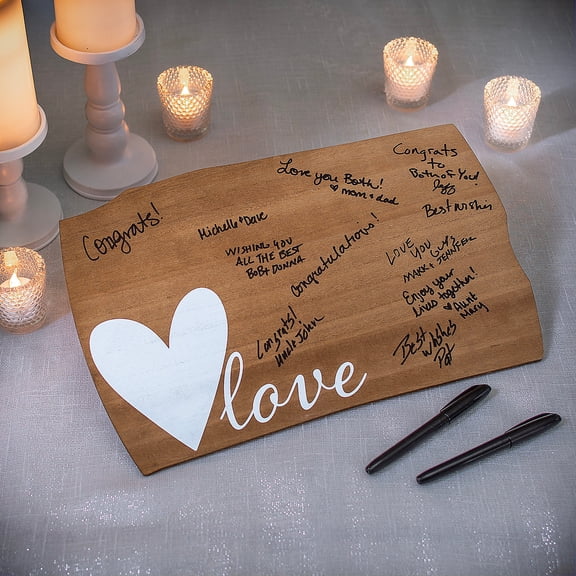 Congrats!
Michelle & Dave
WISHING YOU
ALL THE BEST
BOB & DONNA
Love you Both!
♥ mom & dad
Congratulations!
Congrats!
Uncle John
Congrats
to
Both of You!
Best wishes
LOVE
YOU GUYS
MARK & JENNIFER
Enjoy your
lives together!
♥ Aunt
Mary
Best
wishes
Pat
love